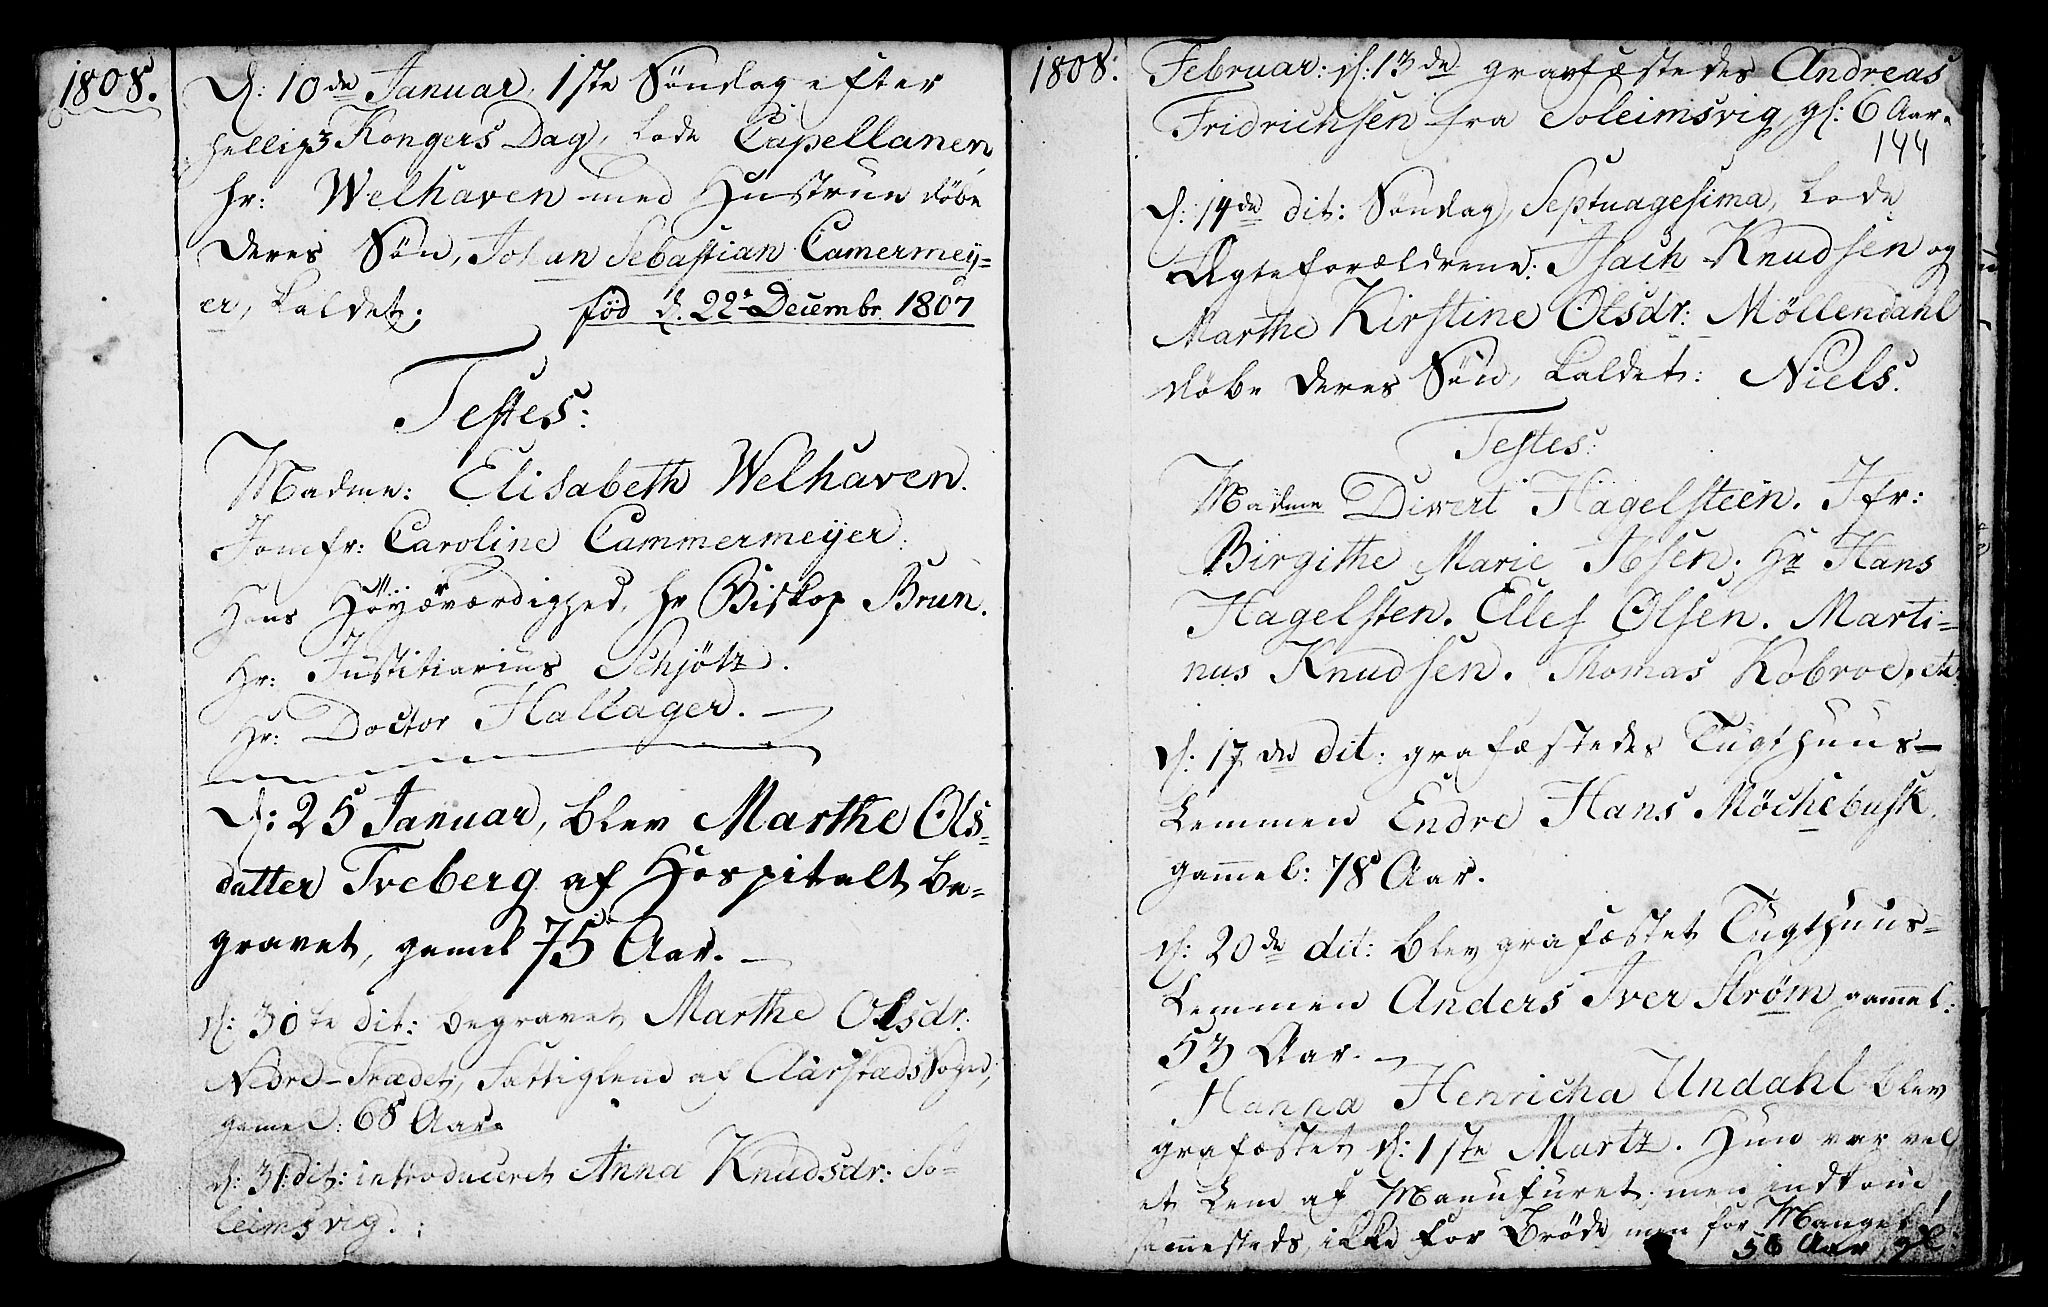 1808.
d: 10de Januar, 1ste Søndag efter
hellig 3 Kongers Dag, lode Capellanen
Hr: Welhaven med Hustrue døbe
deres Søn, Johan Sebastian Camermey=
er, kaldet; fød d. 22 Decembr. 1807
Testes:
Madme: Elisabeth Welhaven.
Jomfr: Caroline Cammermeyer.
Hans Höyærværdighed, Hr Biskop Brun.
Hr: Justitiarius Schjötz.
Hr: Doctor Hallager.
d: 25 Januar, blev Marthe Ols=
datter Tveberg af Hospitalet be=
gravet, gamel 75 Aar.
d: 30te dit: begravet Marthe Olsdr:
Nedre-Trædet, Fattiglem af Aarstads Sogn,
gamel: 68 Aar.
d: 31 dit: introduceret Anna Knudsdr: So=
leimsvig.
1808:
Februar: d: 13de gravfæstedes Andreas
Fridrichsen fra Soleimsvig, gl: 6 Aar.
144
d: 14de dit: Søndag, Septuagesima, lode
Ægteforældrene: Isach Knudsen og
Marthe Kirstine Olsdr: Möllendahl
døbe deres Søn, kaldet: Niels.
Testes:
Madme Divert Hagelsteen. Jfr:
Birgithe Marie Ibsen; Hr Hans
Hagelsten. Ellef Olsen. Marti=
nus Knudsen. Thomas Kobroe, etc
d: 17de dit: grafæstedes Tugthuus-
Lemmen Endre Hans Möchebusk.
gammel: 78 Aar.
d: 20de dit: blev grafæstet Tugthuus=
Lemmen Anders Iver Ström gammel:
53 Aar.
Hanna Henricha Undahl blev
grafæstet d: 1ste Martz. Hun var vel
et Lem af Manufuret, men indkom
sammesteds, ikke for Brøde men for Mangel!
56 Aar, gl